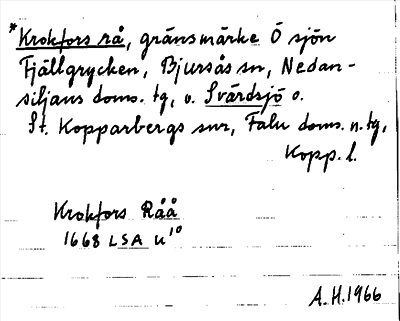 *Krokfors rå, gränsmärke Ö sjön
Fjällgrycken, Bjursås sn, Nedan-
siljans doms. tg, o. Svärdsjö o.
St. Kopparbergs snr, Falu doms. n. tg,
Kopp. l.
Krokfors Råå
1668 LSA u¹⁰
A.H. 1966